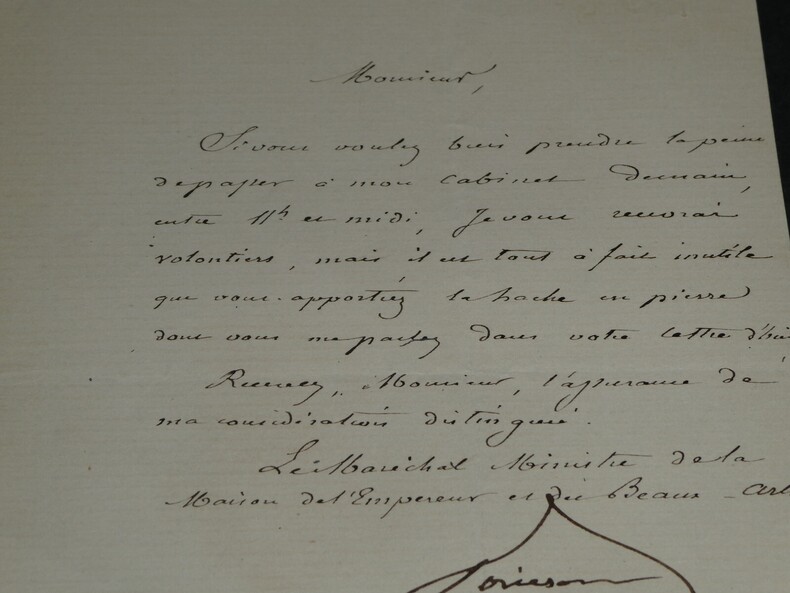 Monsieur,
Si vous voulez bien prendre la peine
de passer à mon cabinet demain,
entre 11h et midi, Je vous recevrai
volontiers, mais, il est tout à fait inutile
que vous apportiez la hache en pierre
dont vous me parlez dans votre lettre d'hi
Recevez, Monsieur, l'assurance de
ma considération distinguée.
Le Maréchal Ministre de la
Maison de l'Empereur et des Beaux-Art